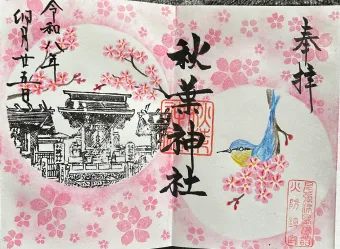 奉拝
秋葉神社
令和八年
卯月廿五日